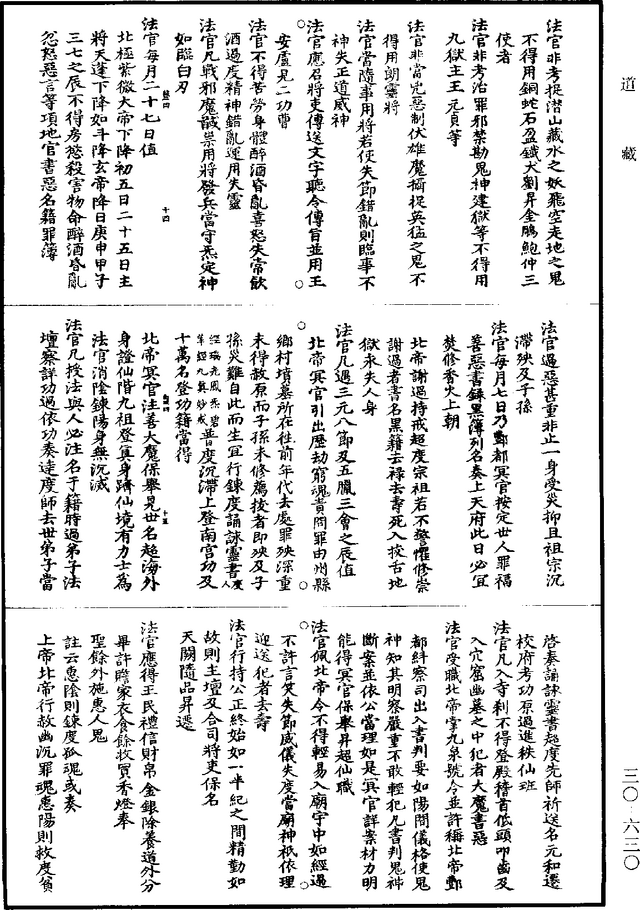 道藏
法官非考捉潛山藏水之妖飛空走地之鬼
不得用銅蛇石盈鐵犬劉昇金鵬鮑仲三
使者
法官非考治罪邪禁勘鬼神建獄等不得用
九獄主王元貞等
法官非當完惡制伏雄魔擒捉英猛之鬼不
得用朗靈將
法官當隨事用將若使失節錯亂則臨事不
神失正道威神
法官應召將吏傳送文字聽令傳旨並用王
安盧兄二功曹
法官不得苦勞身體醉酒昏亂喜怒失常飲
酒過度精神錯亂運用失靈
法官凡戰邪魔馘祟用將發兵當守炁定神
如臨白刃
十四
法官每月二十七日值
北極紫微大帝下降初五日二十五日主
將天逹下降如斗降玄帝降日庚申甲子
三七之辰不得房慾殺害物命醉酒昏亂
忽怒惡言等項地官書惡名籍罪簿
法官過惡甚重非止一身受災抑且祖宗沉
滯殃及子孫
法官每月七日乃酆都冥官按定世人罪福
善惡書錄黑簿列名奏上天府此日必宜
焚修香火上朝
北帝謝過持戒超度宗祖若不警懼修崇
謝過者書名黑籍去祿去壽死入拔舌地
獄永失人身
法官凡遇三元八節及五臘三會之辰值
北帝冥官引出歷劫窮魂責問罪由州縣
鄉村墳墓所在往前年代去處罪殃深重
未得赦原而子孫未修薦拔者即殃及子
孫災難自此而生宜行鍊度誦誄靈書度人
經瑞光風炁碧
單經九真妙戒普度沉滯上登南宮功及
十萬名登功籍當得
十五
北帝冥官注善大魔保舉見世名超海外
身證仙階九祖登真身躋仙境有力士為
法官消陰鍊陽身無沉滅
法官凡授法與人必注名于籍時過弟子法
壇察詳功過依功奏達度師去世弟子當
啓奏誦誄靈書超度先師祈送名元和遷
校府考功原過進秩仙班
法官凡入寺刹不得登殿稽首低頭叩齒及
入穴窟幽墓之中犯者大魔書惡
法官受職北帝掌九泉號令並許稱北帝酆
都糾察司出入書判要如陽間儀格使鬼
神知其明察嚴重不敢輕犯凡書判鬼神
斷案並依公當理如是冥官詳案材力明
能得冥官保舉昇超仙職
法官佩北帝令不得輕易入廟宇中如經過
不許言笑失節威儀失度當廟神祇依理
迎送犯者去壽
法官行持公正終始如一半紀之間精勤如
故則主壇及合司將吏保名
天闕隨品昇遷
法官應得王民禮信財帛金銀除養道外分
畢許贍家衣食餘收買香燈奉
聖餘外施惠人鬼
註云惠陰則鍊度孤魂或奏
上帝北帝行赦幽沉罪魂惠陽則救度貧
三〇-六三〇